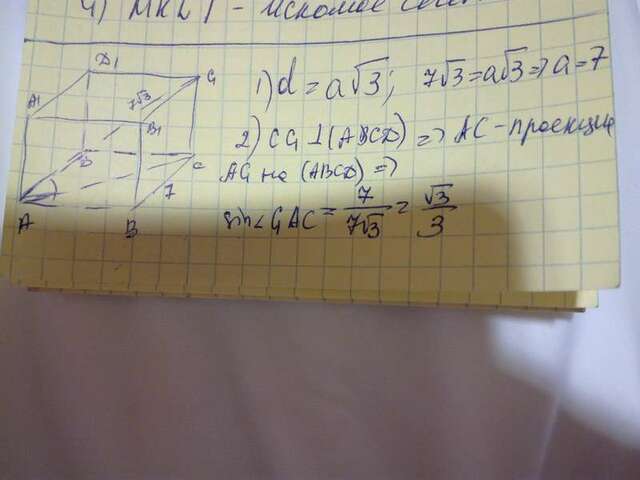 4) MKLT - искомое сечен
D1
C1
A1
B1
7√3
D
C
7
A
B
1) d = a√3; 7√3 = a√3 => a = 7
2) CC1 ⊥ (ABCD) => AC - проекция
AC1 на (ABCD) =>
sin∠C1AC = 7/7√3 = √3/3